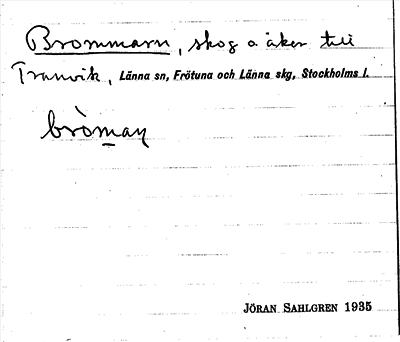 Brommarn, skog o åker till
Tranvik, Länna sn, Frötuna och Länna skg, Stockholms l.
bròmaṇ
JÖRAN SAHLGREN 1935